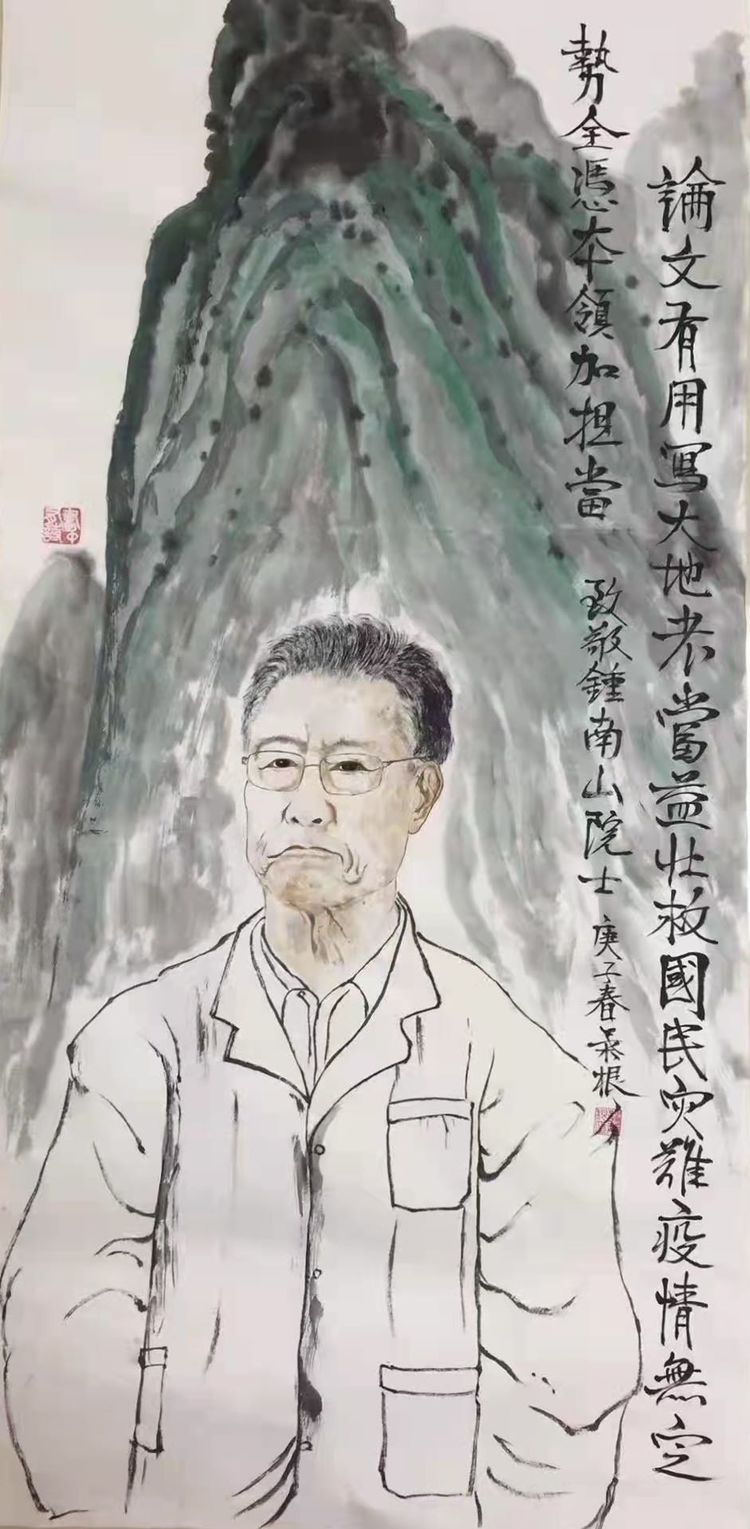 論文有用寫大地老當益壯救國民灾難疫情無定
勢全憑本領加担當
致敬鍾南山院士
庚子春